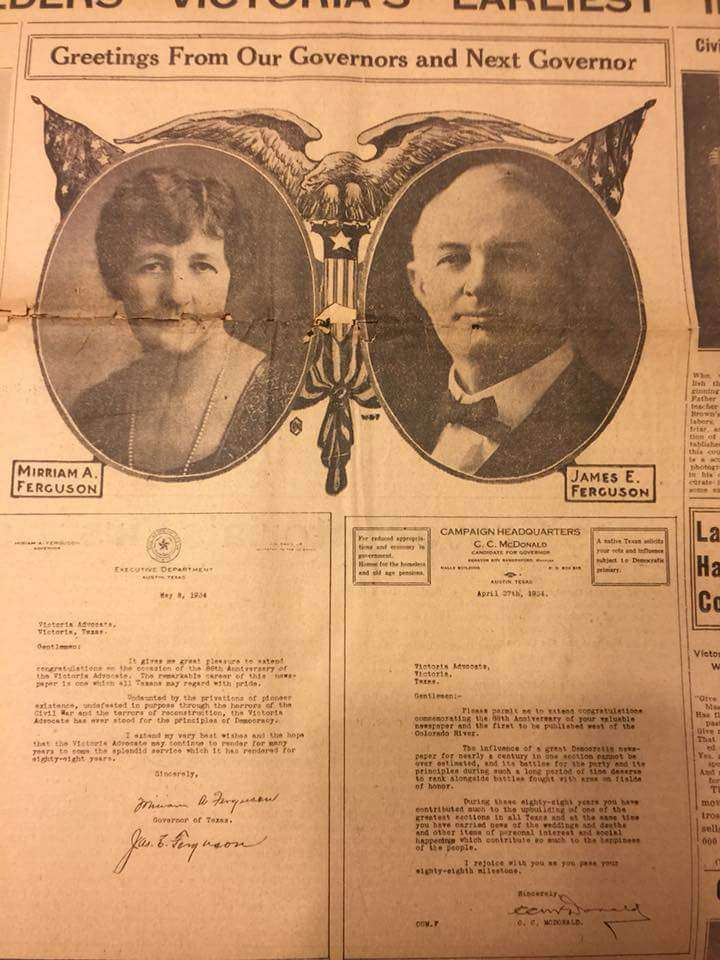 VICTORIA'S EARLIEST
Greetings From Our Governors and Next Governor
MIRRIAM A.
FERGUSON
JAMES E.
FERGUSON
MIRIAM A. FERGUSON
GOVERNOR
EXECUTIVE DEPARTMENT
AUSTIN, TEXAS
May 8, 1934
Victoria Advocate,
Victoria, Texas.
Gentlemen:
It gives me great pleasure to extend
congratulations on the occasion of the 88th Anniversary of
the Victoria Advocate. The remarkable career of this news-
paper is one which all Texans may regard with pride.
Undaunted by the privations of pioneer
existence, undefeated in purpose through the horrors of the
Civil War and the terrors of reconstruction, the Victoria
Advocate has ever stood for the principles of Democracy.
I extend my very best wishes and the hope
that the Victoria Advocate may continue to render for many
years to come the splendid service which it has rendered for
eighty-eight years.
Sincerely,
Miriam A. Ferguson
Governor of Texas.
Jas. E. Ferguson
For reduced appropria-
tions and economy in
government.
Homes for the homeless
and old age pensions.
CAMPAIGN HEADQUARTERS
C. C. McDONALD
CANDIDATE FOR GOVERNOR
AUSTIN, TEXAS
A native Texan solicits
your vote and influence
subject to Democratic
primary.
April 27th, 1934.
Victoria Advocate,
Victoria,
Texas.
Gentlemen:-
Please permit me to extend congratulations
commemorating the 88th Anniversary of your valuable
newspaper and the first to be published west of the
Colorado River.
The influence of a great Democratic news-
paper for nearly a century in one section cannot be
over estimated, and its battles for the party and its
principles during such a long period of time deserve
to rank alongside battles fought with arms on fields
of honor.
During these eighty-eight years you have
contributed much to the upbuilding of one of the
greatest sections in all Texas and at the same time
you have carried news of the weddings and deaths
and other items of personal interest and social
happenings which contribute so much to the happiness
of the people.
I rejoice with you as you pass your
eighty-eighth milestone.
Sincerely,
C C McDonald
CCM.F
C. C. McDONALD.